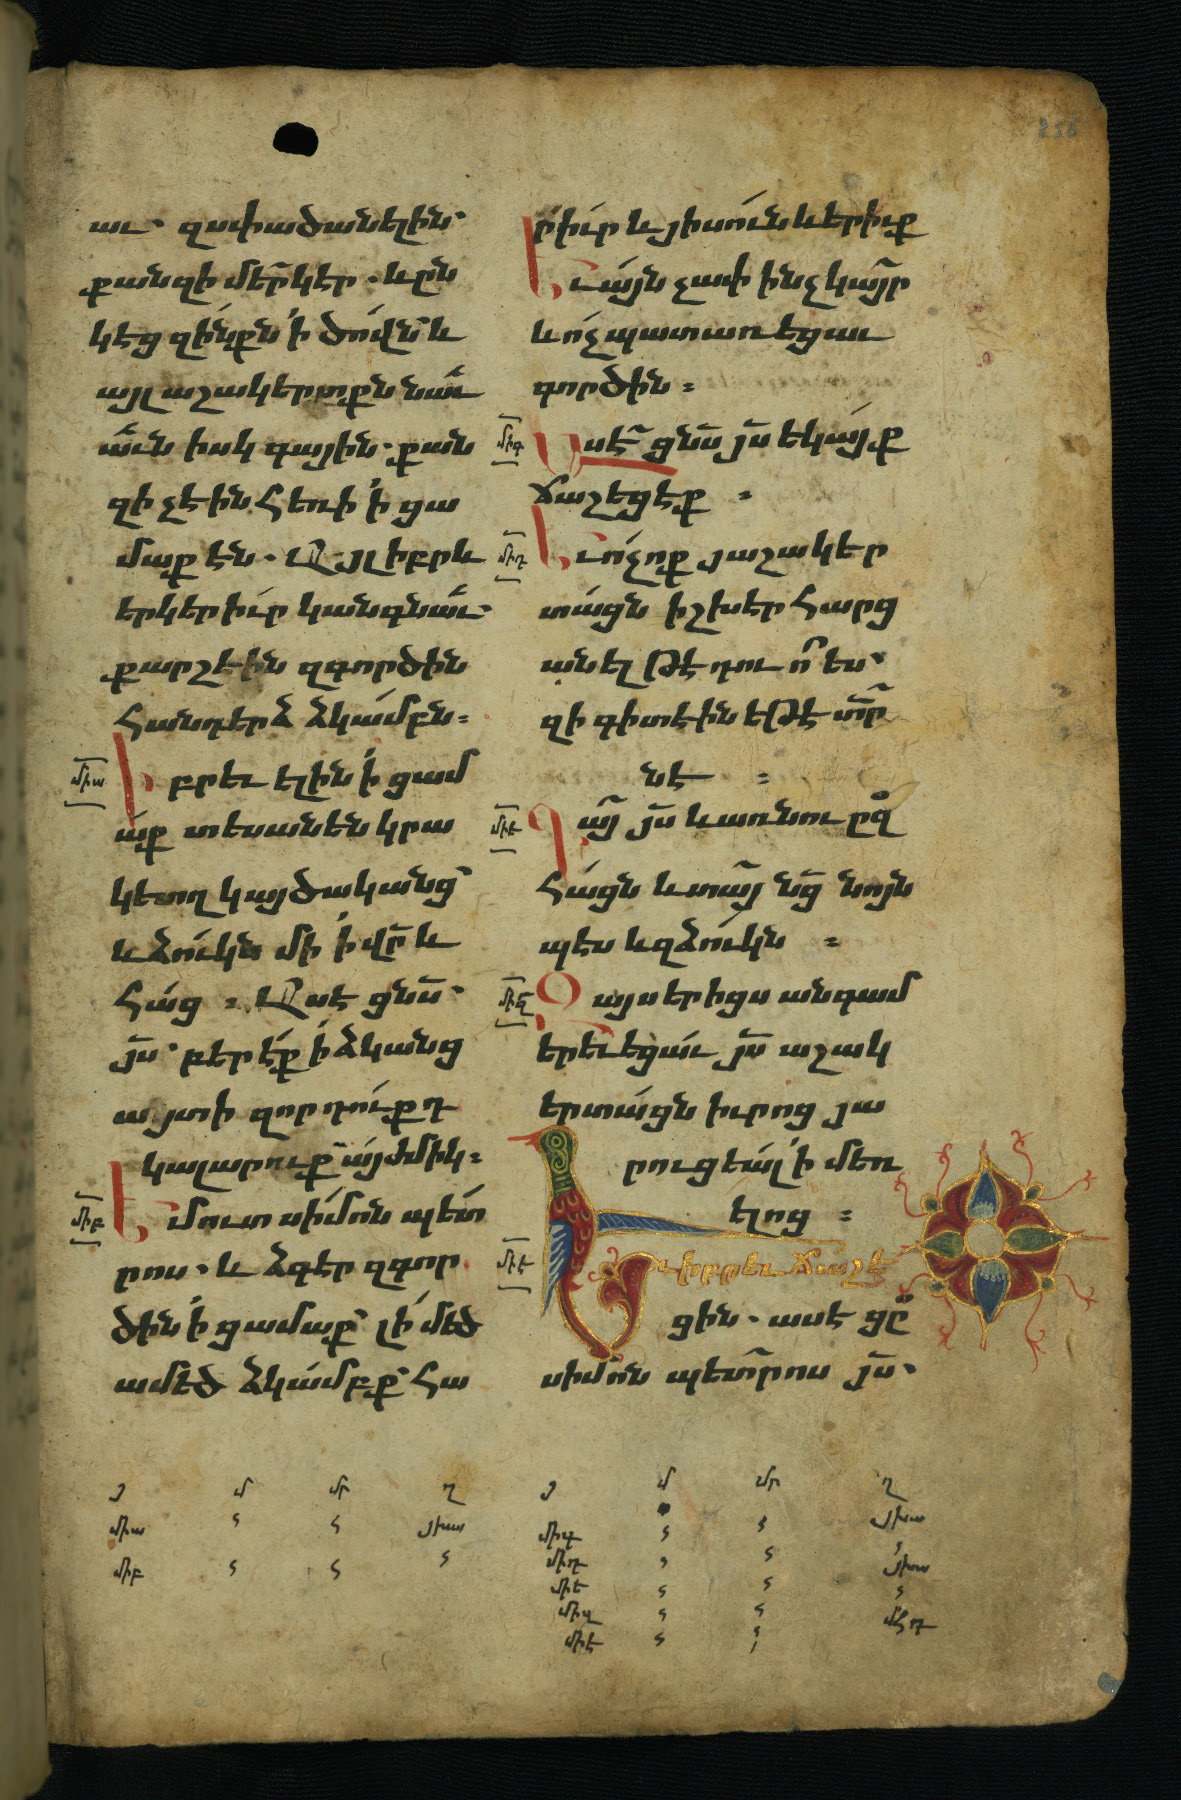 աւ՝ զսփածանելին՝
քանզի մերկ էր. և ըն
կէց զինքն ի ծովն՝ և
այլ աշակերտքն նաւ
աւն իսկ գային. քան
զի չէին հեռի ի ցա
մաքէն. Այլ իբրև
երկերիւր կանգնաւ՝
քարշէին զգործին
հանդերձ ձկամբն։
միա
Իբրեւ ելին ի ցամ
աք տեսանեն կրա
կետղ կայծականց՝
և ձուկն մի ի վր և
հաց։ Ասէ ցնս՝
յս՝ բերէք ի ձկանց
այտի զոր դուքդ
կալարուք այժմիկ։
միբ
Եմուտ սիմոն պետ
րոս. և ձգէր զգոր
ծին ի ցամաք՝ լի մեծ
ամեծ ձկամբք՝ հա
րիւր և յիսուն և երիւք
Եւ այն չափ ինչ կայր
և ոչ պատառեցաւ
գործին։
միգ
Ասէ ցնս յս եկայք
ճաշեցէք։
միդ
Եւ ոչ ոք յաշակեր
տացն իշխէր հարց
անել թէ դու ո՞ ես՝
զի գիտէին եթէ տր
նէ։
միե
Գայ յս և առնու ըզ
հացն և տայ նց նոյն
պէս և զձուկն։
միզ
Զայս երիցս անգամ
երեւեցաւ յս աշակ
երտացն իւրոց յա
րուցեալ ի մեռ
ելոց։
միէ
Եւ իբրեւ ճաշե
ցին. ասէ ցը
սիմոն պետրոս յս.
յ մ մր ղ
միա յխա
միբ
յ մ մր ղ
միգ յխա
միդ յխա
միե
միզ մհդ
միէ